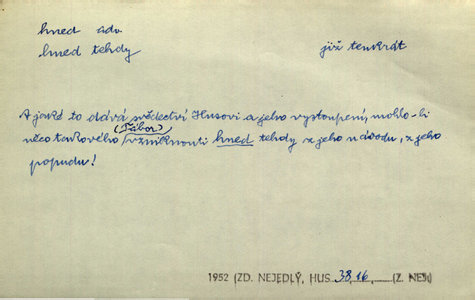 hned adv.
hned tehdy již tenkrát
A jaké to dává svědectví Husovi a jeho vystoupení, mohlo-li
něco takového (Tábor) vzniknouti hned tehdy z jeho návodu, z jeho
popudu!
1952 (ZD. NEJEDLÝ, HUS 38, 16, (Z. NEJ.)